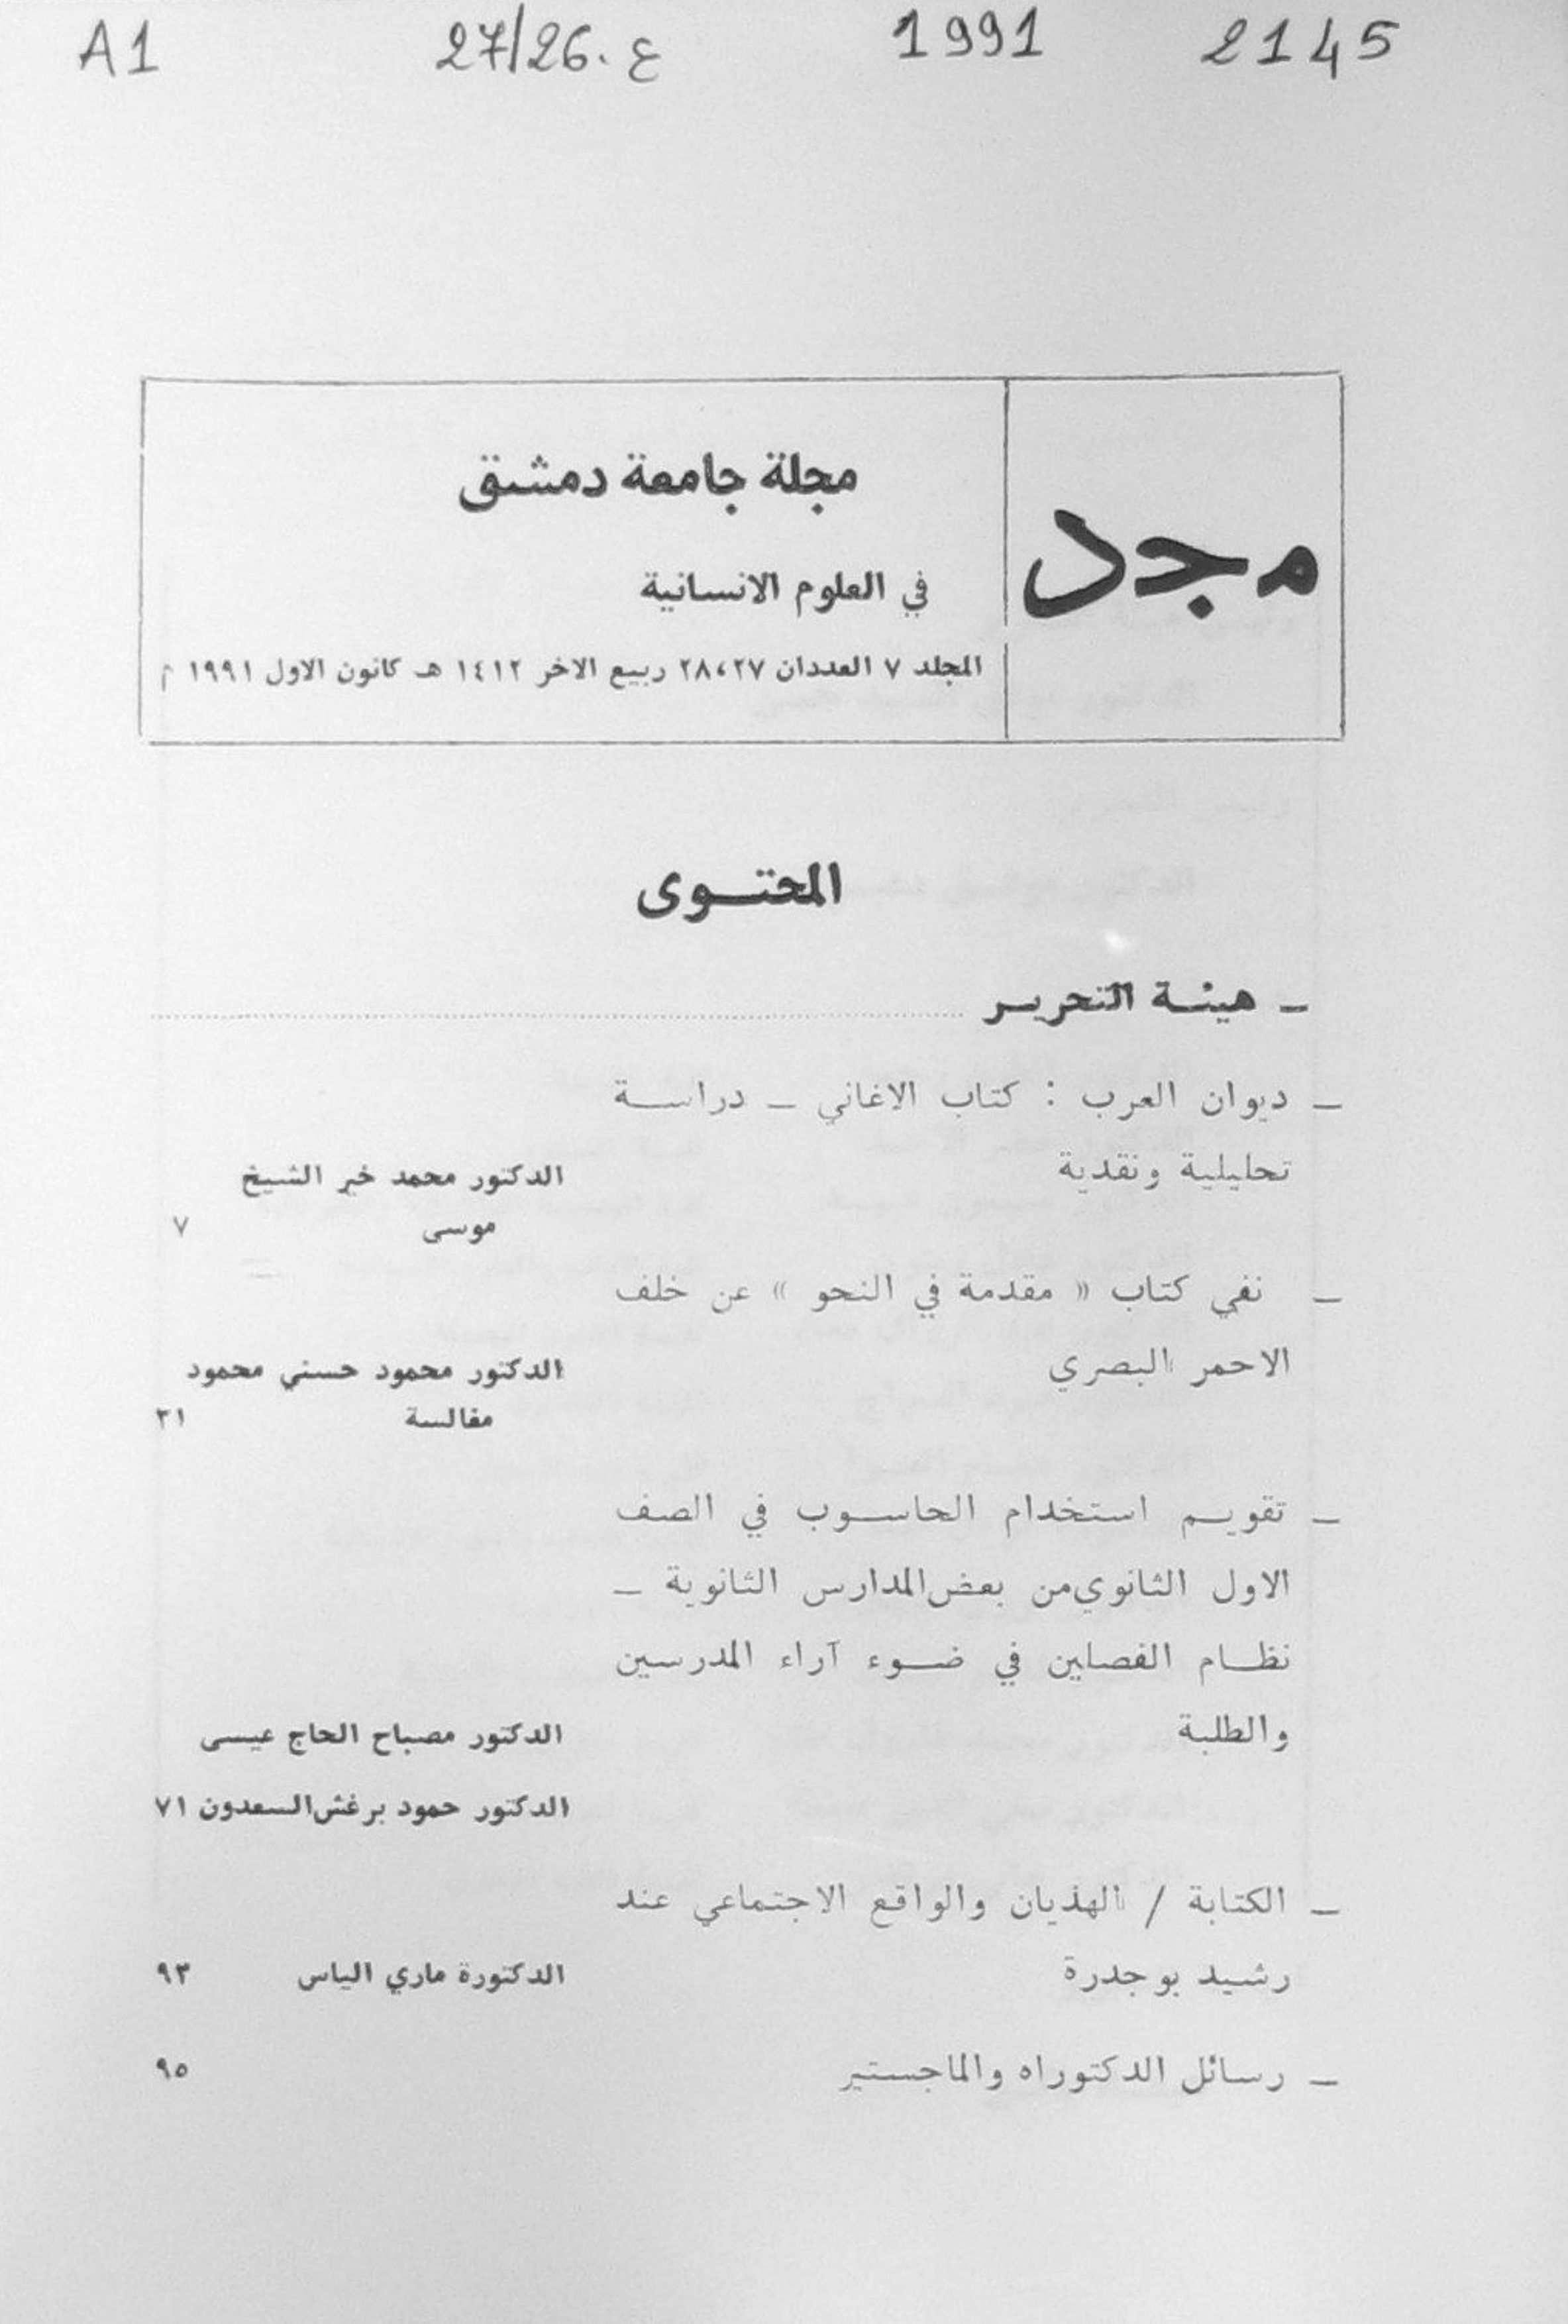 A1 27/26.ع 1991 2145
مجد
مجلة جامعة دمشق
في العلوم الانسانية
المجلد ٧ العددان ٢٨،٢٧ ربيع الاخر ١٤١٢ هـ كانون الاول ١٩٩١ م
المحتوى
ـ هيئة التحرير
ـ ديوان العرب : كتاب الاغاني ـ دراسة
تحليلية ونقدية الدكتور محمد خير الشيخ
موسى ٧
ـ نفي كتاب « مقدمة في النحو » عن خلف
الاحمر البصري الدكتور محمود حسني محمود
مغالسة ٣١
ـ تقويم استخدام الحاسوب في الصف
الاول الثانوي من بعض المدارس الثانوية ـ
نظام الفصلين في ضوء آراء المدرسين
والطلبة الدكتور مصباح الحاج عيسى
الدكتور حمود برغش السعدون ٧١
ـ الكتابة / الهذيان والواقع الاجتماعي عند
رشيد بوجدرة الدكتورة ماري الياس ٩٣
ـ رسائل الدكتوراه والماجستير ٩٥